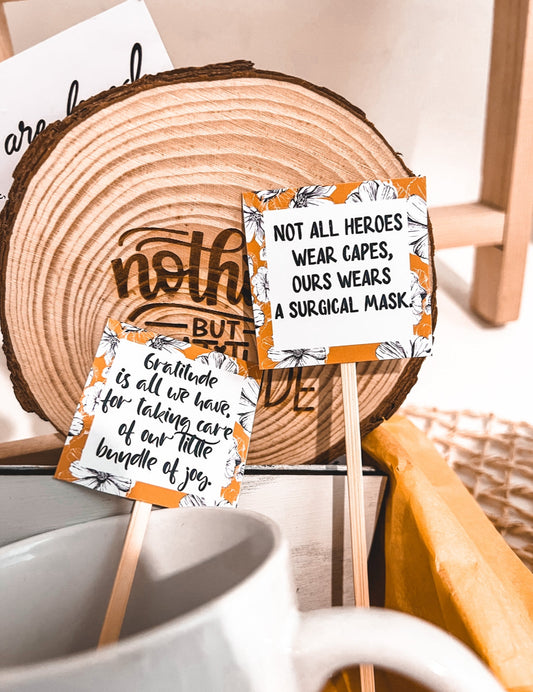 are
nothi
BUT
NOT ALL HEROES
WEAR CAPES,
OURS WEARS
A SURGICAL MASK.
Gratitude
is all we have,
for taking care
of our little
bundle of joy.